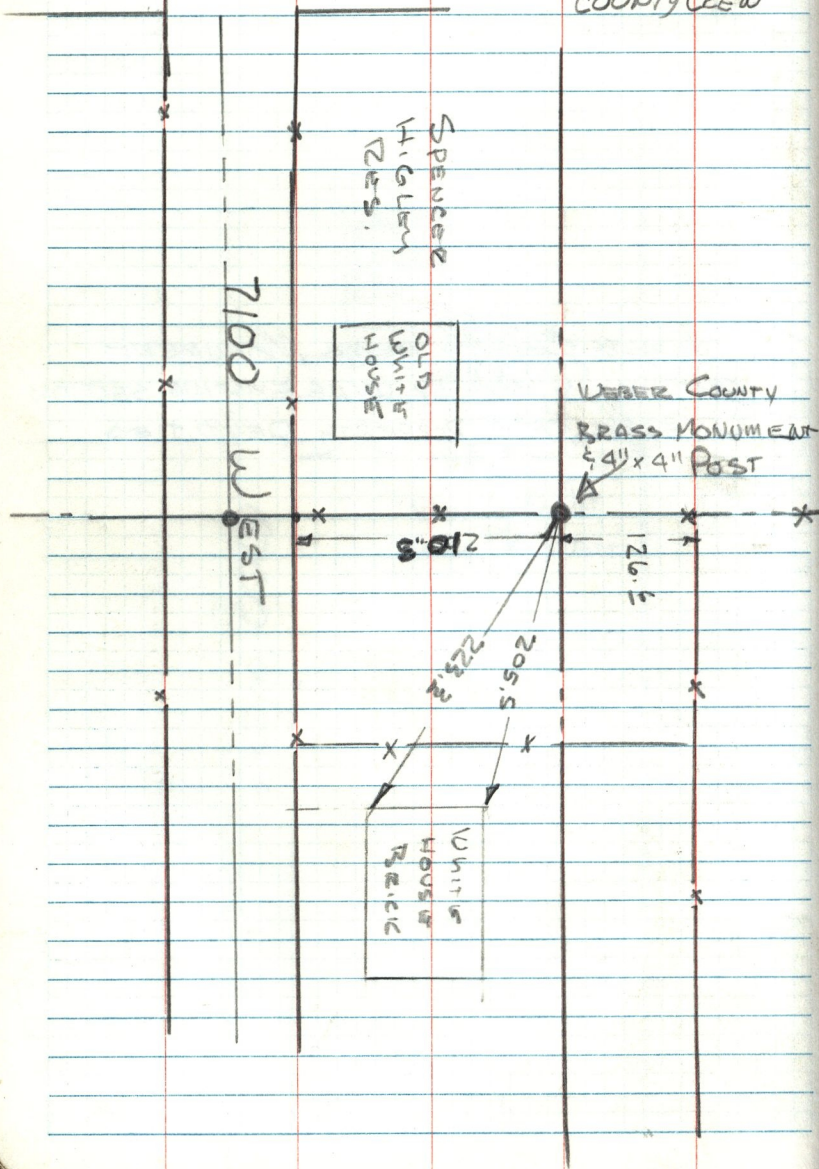 COUNTY CREW
SPENCER
HIGLEY
RES.
7100 WEST
OLD
WHITE
HOUSE
WEBER COUNTY
BRASS MONUMENT
& 4" x 4" POST
126.5
223.2
205.5
WHITE
HOUSE
BRICK